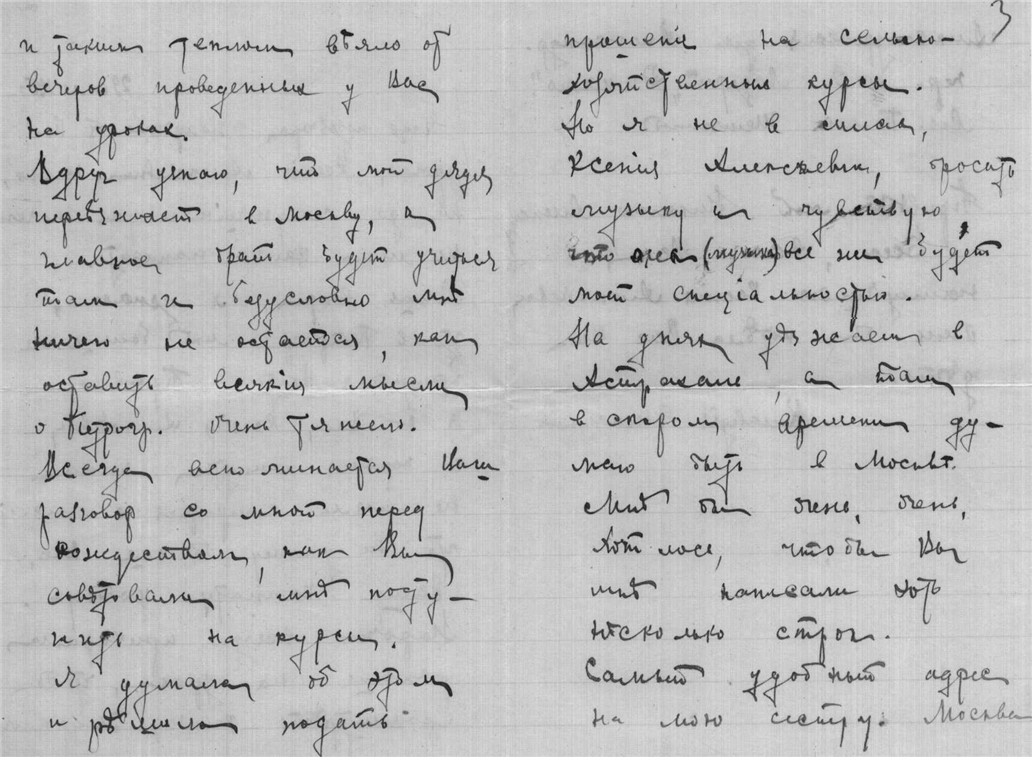 и таким теплом вѣяло от
вечеров проведенных у Вас
на уроках.
Вдруг узнаю, что мой дядя
переѣзжает в Москву, а
главное, брат будет учиться
там и безусловно мнѣ
ничего не остается, как
оставить всякія мысли
о Петрогр. Очень тяжело.
Всегда вспоминается Ваш
разговор со мной перед
Рождеством, как Вы
совѣтовали мнѣ посту-
пить на курсы.
Я думала об этом
и рѣшила подать
3
прошеніе на сельско-
хозяйственные курсы.
Но я не в силах,
Ксенія Алексѣевна, бросать
музыку и чувствую
что она (музыка) все же будет
моей спеціальностью.
На днях уѣзжаем в
Астрахань, а там
в скором времени ду-
маю быть в Москвѣ.
Мнѣ бы очень, очень,
хотѣлось, чтобы Вы
мнѣ написали хоть
нѣсколько строк.
Самый удобный адрес
на мою сестру: Москва